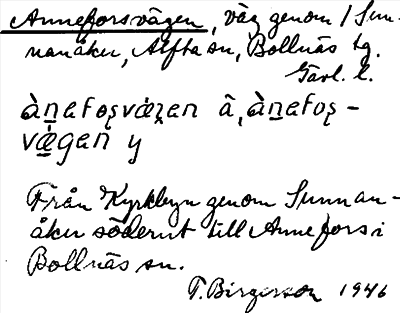 Anneforsvägen, väg genom / Sun-
nanåker, Alfta sn, Bollnäs tg.
Gävl. l.
ànefoʂvæ̀gen â, ànefoʂ-
væ̀gen y
Från Kyrkbyn genom Sunnan-
åker söderut till Annefors i
Bollnäs sn.
F. Birgerson 1946